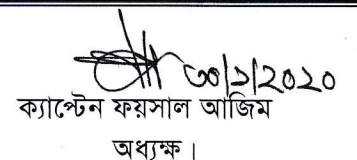 ৩০/১/২০২০
ক্যাপ্টেন ফয়সাল আজিম
অধ্যক্ষ।